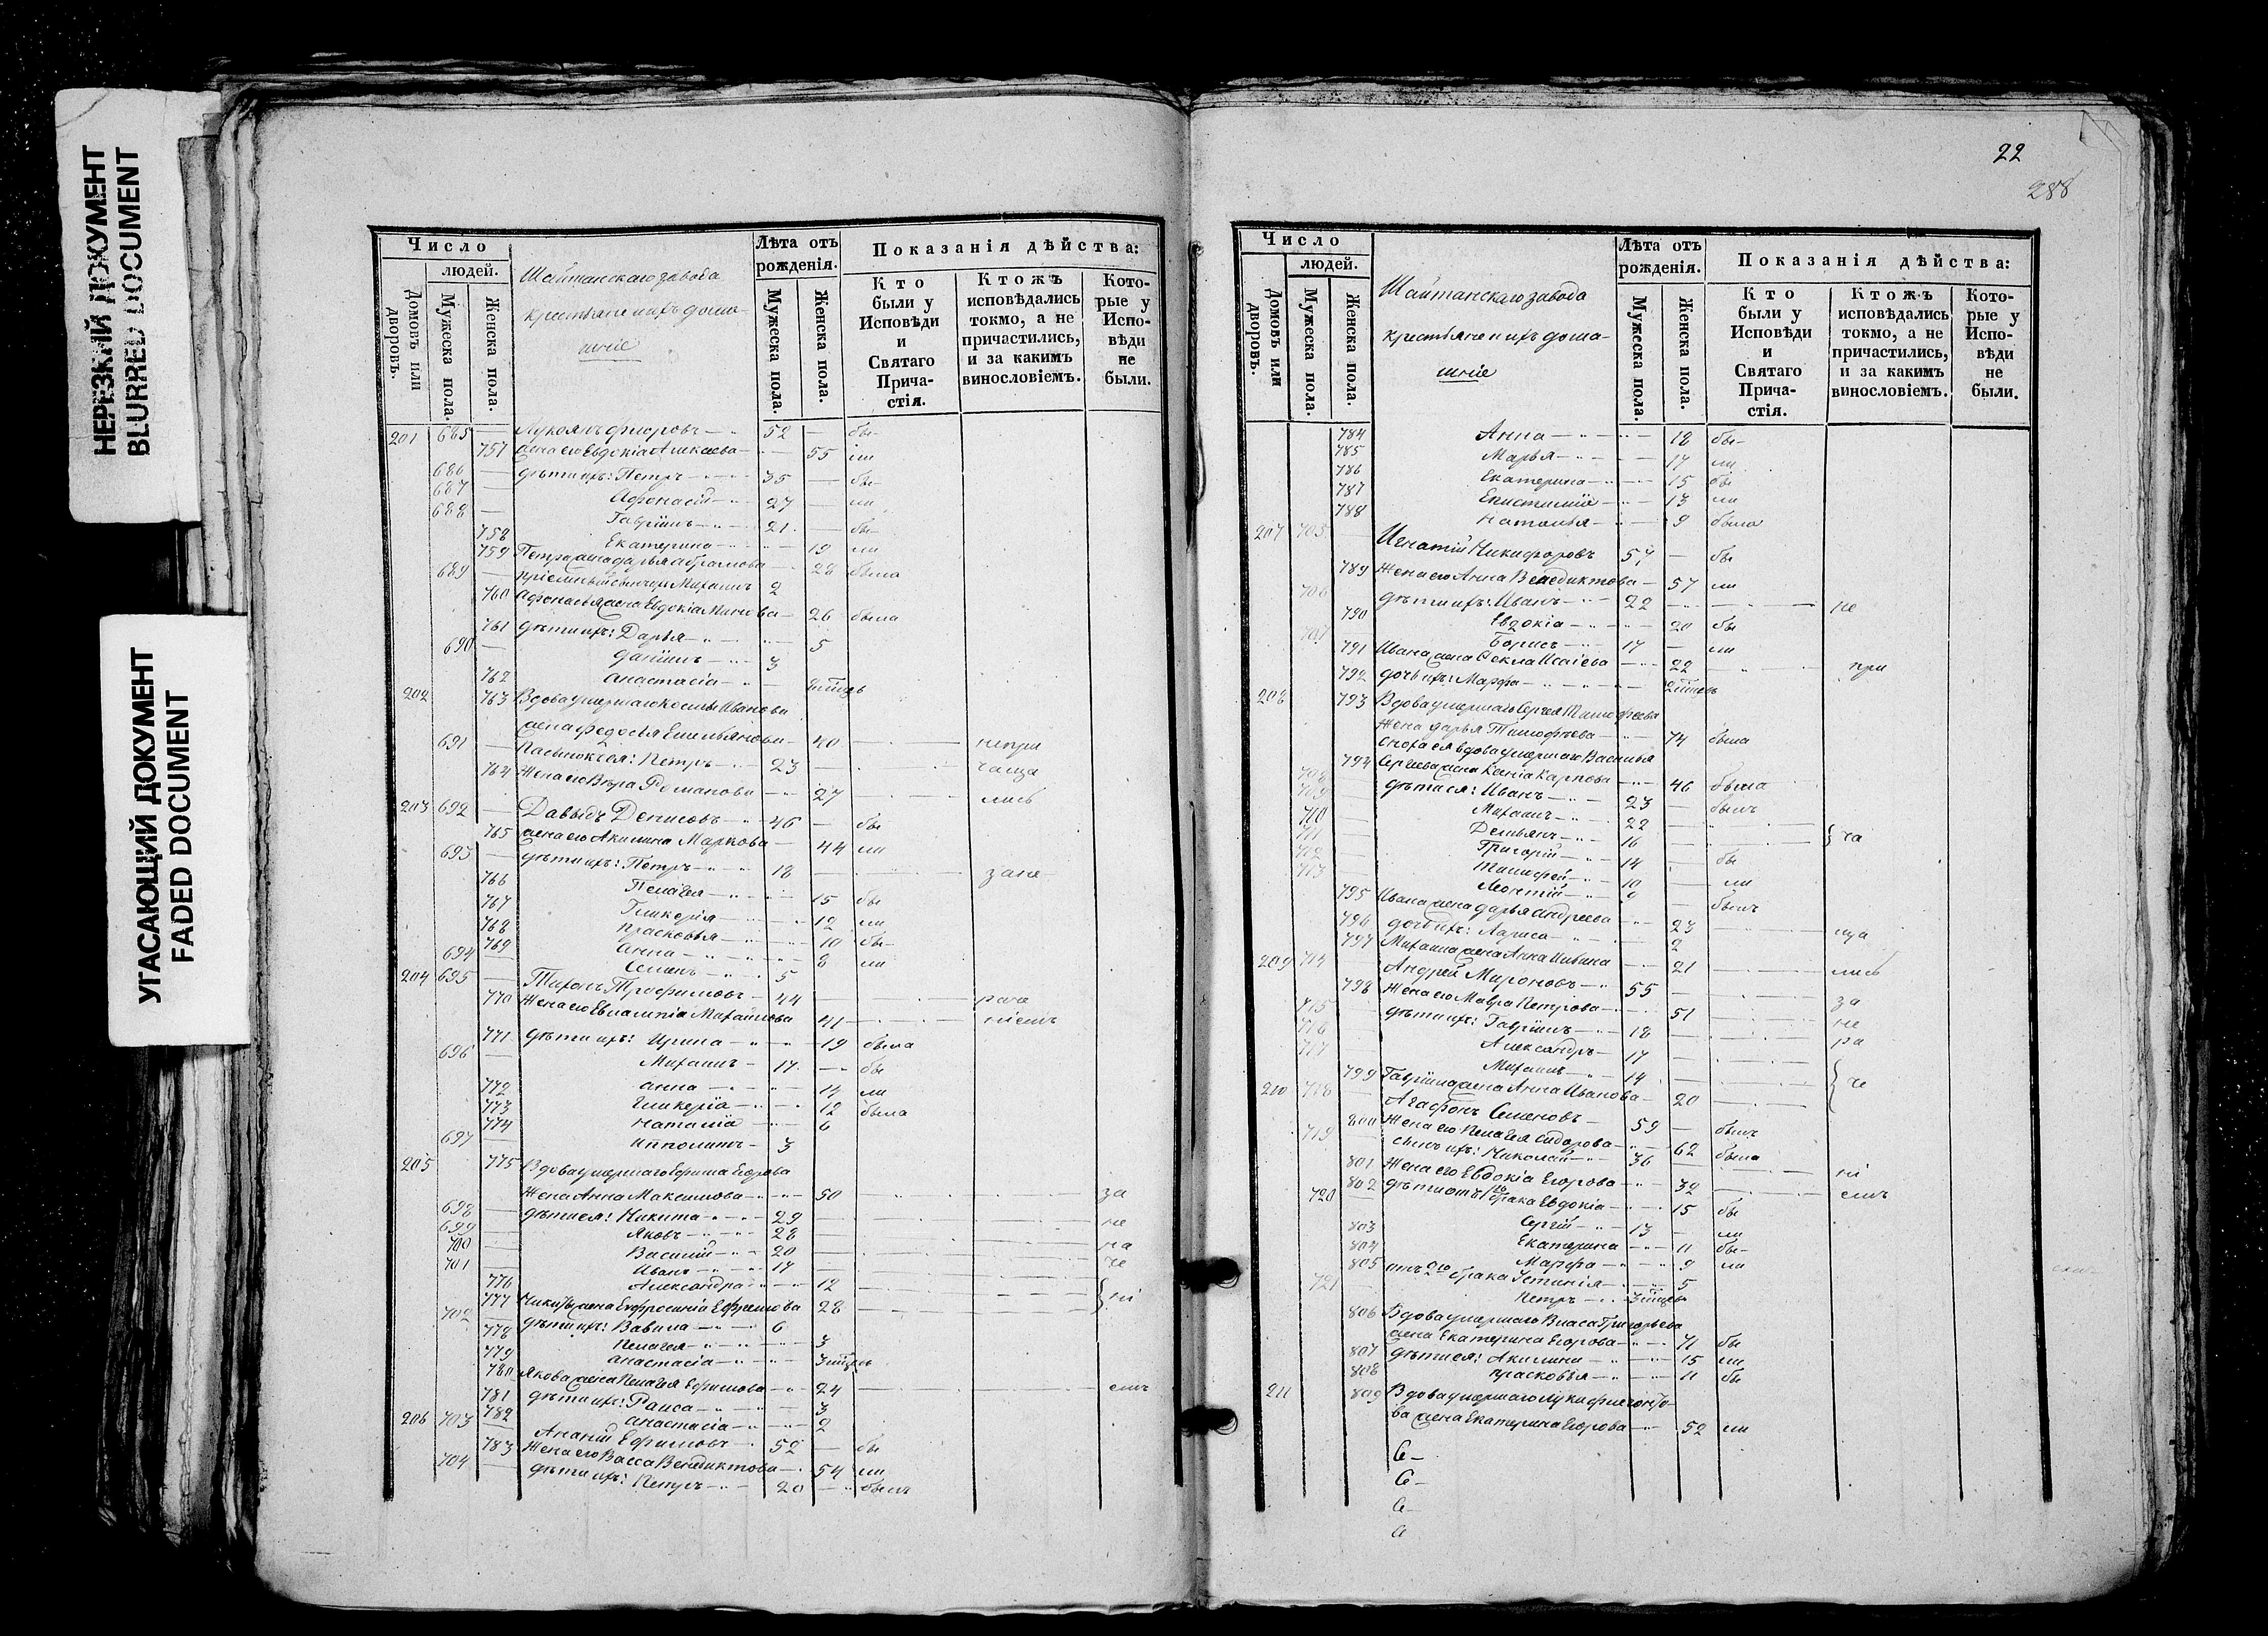 НЕРЕЗКИЙ ДОКУМЕНТ
BLURRED DOCUMENT
УГАСАЮЩИЙ ДОКУМЕНТ
FADED DOCUMENT
Число
людей.
Домовъ или дворовъ.
Мужеска пола.
Женска пола.
Шайтанскаго завода
крестьяне и ихъ дома-
шніе
Лѣта отъ рожденія.
Мужеска пола.
Женска пола.
Показанія дѣйства:
Кто были у Исповѣди и Святаго Прича-стія.
Ктожъ исповѣдались токмо, а не причастились, и за какимъ винословіемъ.
Кото-рые у Испо-вѣди не были.
201 685 — 52 — бы-
757 жена его Евдокія — 55 ли
686 — дѣти ихъ: Петръ — 35 — бы-
687 — Афонасій — 27 — ли
688 — Гавріилъ — 21 — бы-
758 Екатерина — 19 ли
759 Петра жена Дарья Абрамова — 28 была
689 — Михаилъ 2
760 жена Евдокія — 26 была
761 дѣти ихъ: Дарья — 5
690 — Даніилъ — 3
762 Анастасія —
202 763 Вдова умершаго Космы Иванова
жена Федосья Емельянова — 40 — непри
691 — Пасынокъ ея: Петръ — 23 — чаща
764 Жена его Вѣра Романова — 27 — лись
203 692 — Давыдъ Денисовъ — 46 — бы
765 жена его Акилина Маркова — 44 ли
693 — дѣти ихъ: Петръ — 18 — зане
766 Пелагея — 15 бы
767 Гликерія — 12 ли
768 Прасковья — 10 бы-
769 Анна — 8 ли
694 — Семенъ — 5
204 695 — Тихонъ Трофимовъ — 44 — раче
770 Жена его Евлампія Михайлова 41 — ніемъ
771 дѣти ихъ: Ирина — 19 была
696 — Михаилъ — 17 — бы
772 Анна — 14 ли
773 Гликерія — 12 была
774 Наталія — 6
697 — Ипполитъ — 3
205 775 Вдова умершаго Ефима Егорова
Жена Анна Максимова — 50 — за
698 — дѣти ея: Никита — 29 — не
699 — Яковъ — 28 — на
700 — Василій — 20 — че
701 — Иванъ — 17 —
776 Александра — 12 —
777 Никиты жена Евфросинія Ефремова 28 — ні
702 — дѣти ихъ: Вавила — 6
778 Пелагея — 3
779 Анастасія —
780 Якова жена Пелагья Ефимова — 24 — емъ
781 дѣти ихъ: Раиса — 3
782 Анастасія — 2
206 703 — Ананій Ефимовъ — 52 — бы
783 Жена его Васса Венедиктова — 54 ли
704 — дѣти ихъ: Петръ — 20 — былъ
22
288
Число
людей.
Домовъ или дворовъ.
Мужеска пола.
Женска пола.
Шайтанскаго завода
крестьяне и ихъ дома-
шніе
Лѣта отъ рожденія.
Мужеска пола.
Женска пола.
Показанія дѣйства:
Кто были у Исповѣди и Святаго Прича-стія.
Ктожъ исповѣдались токмо, а не причастились, и за какимъ винословіемъ.
Кото-рые у Испо-вѣди не были.
784 Анна — 18 бы-
785 Марья — 17 ли
786 Екатерина — 15 бы
787 Епистимія — 13 ли
788 Наталья — 9 была
207 705 Игнатій Никифоровъ 57 — бы
789 Жена его Анна Венедиктова — 57 ли
706 дѣти ихъ: Иванъ — 22 — не
790 Евдокія — 20 бы
707 Борисъ — 17 — ли
791 Ивана жена Фекла Исаіева — 22 — при
792 дочь ихъ: Марфа —
208 793 Вдова умершаго Сергея Тимофеева
Жена Дарья Тимофѣева — 74 была
Сноха ея вдова умершаго Василья
794 Сергѣева жена Ксенія Карпова — 46 была
708 — дѣти ея: Иванъ — 23 — былъ
709 — Михаилъ — 22 —
710 — Демьянъ — 16 — ча
711 — Григорій — 14 — бы
712 — Тимофей — 10 — ли
713 — Леонтій — 9 — былъ
795 Ивана жена Дарья Андреева — 23 — ща
796 дочь ихъ: Лариса — 2
797 Михаила жена Анна — 21 — лись
209 714 — Андрей Мироновъ — 55 —
798 Жена его Мавра Петрова — 51 — за
715 — дѣти ихъ: Гавріилъ — 18 — не
716 — Александръ — 17 — ра
717 — Михаилъ — 14 —
799 Гавріила жена Анна Иванова — 20 — че
210 718 — Агафонъ Семеновъ — 59 — былъ
800 Жена его Пелагея Сидорова — 62 была
719 — сынъ ихъ: Николай — 36 — ні
801 Жена его Евдокія Егорова — 32 — емъ
802 дѣти отъ 1го брака Евдокія — 15 бы
720 Сергій — 13 — ли
803 Екатерина — 11 бы-
804 Марфа — 9 ли
805 отъ 2го брака Устинія — 5
721 Петръ —
806 Вдова умершаго Власа Григорьева
жена Екатерина Егорова — 71 бы
807 дѣти ея: Акилина — 15 ли
808 Прасковья — 11 бы
211 809 Вдова умершаго Луки
ва жена Екатерина Егорова — 52 ли